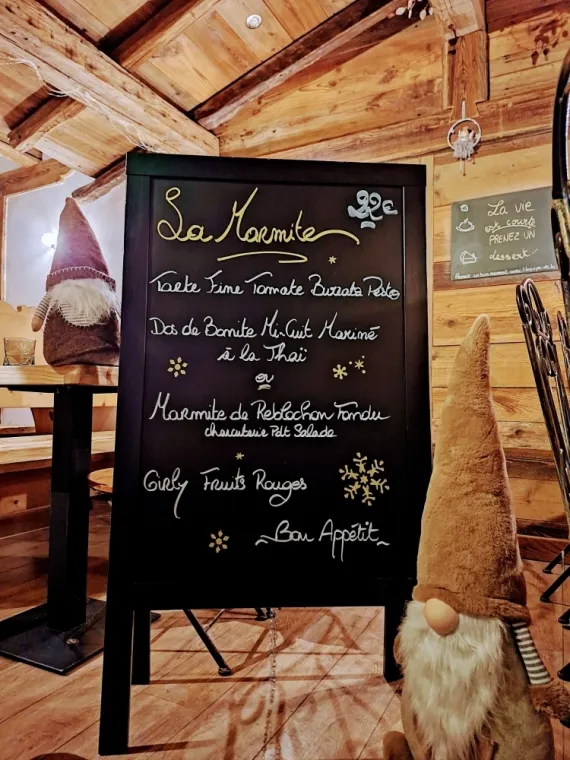 La Marmite
32€
Tarte Fine Tomate Burrata Pesto
Dos de Bonite Mi-Cuit Mariné
à la Thaï
ou
Marmite de Reblochon Fondu
charcuterie Pdt Salade
Girly Fruits Rouges
Bon Appétit
La vie
est courte
PRENEZ UN
dessert